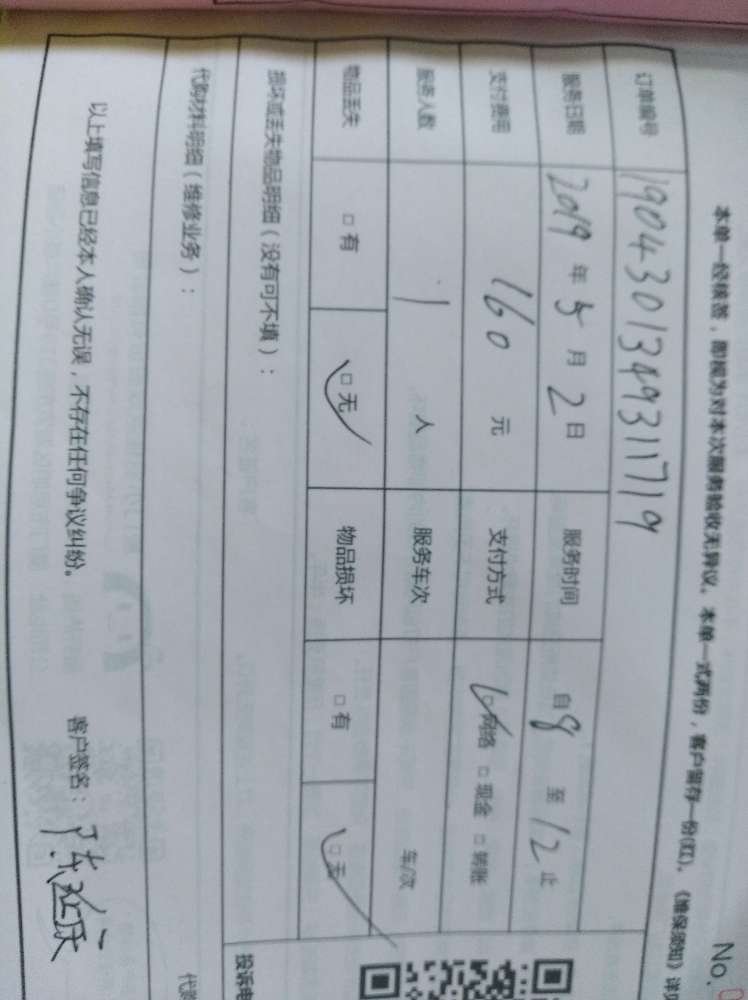 No.
本单一经核签，即视为对本次服务验收无异议。本单一式两份，客户留存一份(红)。《维保须知》详
订单编号 19043013493117119
服务日期 2019 年 5 月 2 日 服务时间 自 8 至 12 止
支付费用 160 元 支付方式 □网络 □现金 □转账
服务人数 1 人 服务车次 车/次
物品丢失 □有 □无 物品损坏 □有 □无
损坏或丢失物品明细（没有可不填）：
投诉电
代购材料明细（维修业务）：
代购
以上填写信息已经本人确认无误，不存在任何争议纠纷。 客户签名：